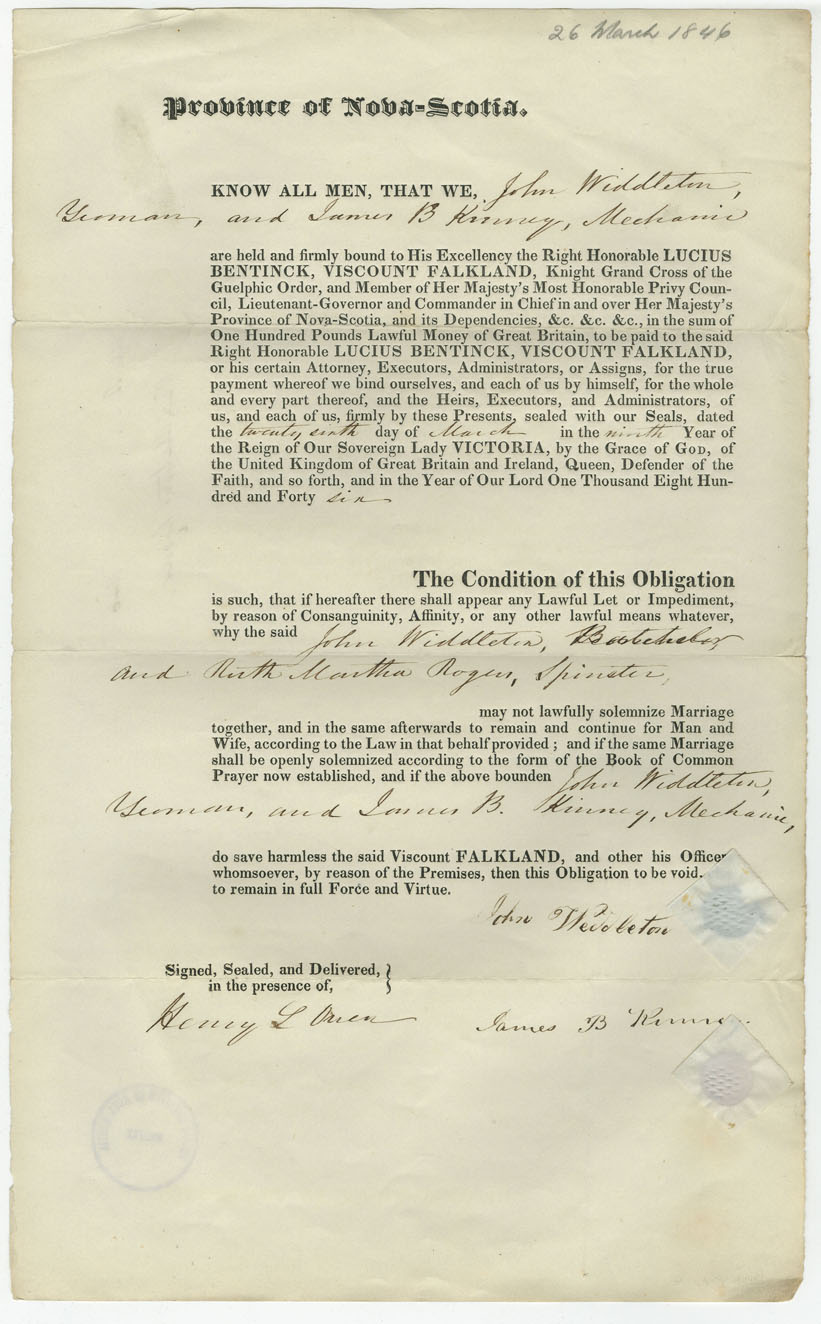 26 March 1846
Province of Nova-Scotia.
KNOW ALL MEN, THAT WE, John Widdleton,
Yeoman, and James B Kinney, Mechanic
are held and firmly bound to His Excellency the Right Honorable LUCIUS
BENTINCK, VISCOUNT FALKLAND, Knight Grand Cross of the
Guelphic Order, and Member of Her Majesty's Most Honorable Privy Coun-
cil, Lieutenant-Governor and Commander in Chief in and over Her Majesty's
Province of Nova-Scotia, and its Dependencies, &c. &c. &c., in the sum of
One Hundred Pounds Lawful Money of Great Britain, to be paid to the said
Right Honorable LUCIUS BENTINCK, VISCOUNT FALKLAND,
or his certain Attorney, Executors, Administrators, or Assigns, for the true
payment whereof we bind ourselves, and each of us by himself, for the whole
and every part thereof, and the Heirs, Executors, and Administrators, of
us, and each of us, firmly by these Presents, sealed with our Seals, dated
the twenty sixth day of March in the ninth Year of
the Reign of Our Sovereign Lady VICTORIA, by the Grace of GOD, of
the United Kingdom of Great Britain and Ireland, Queen, Defender of the
Faith, and so forth, and in the Year of Our Lord One Thousand Eight Hun-
dred and Forty six
The Condition of this Obligation
is such, that if hereafter there shall appear any Lawful Let or Impediment,
by reason of Consanguinity, Affinity, or any other lawful means whatever,
why the said John Widdleton, Batchelor,
and Ruth Martha Rogers, Spinster,
may not lawfully solemnize Marriage
together, and in the same afterwards to remain and continue for Man and
Wife, according to the Law in that behalf provided ; and if the same Marriage
shall be openly solemnized according to the form of the Book of Common
Prayer now established, and if the above bounden John Widdleton,
Yeoman, and James B. Kinney, Mechanic,
do save harmless the said Viscount FALKLAND, and other his Officer
whomsoever, by reason of the Premises, then this Obligation to be void.
to remain in full Force and Virtue.
John Weddleton
Signed, Sealed, and Delivered, }
in the presence of,
Henry L Owen
James B Kinney